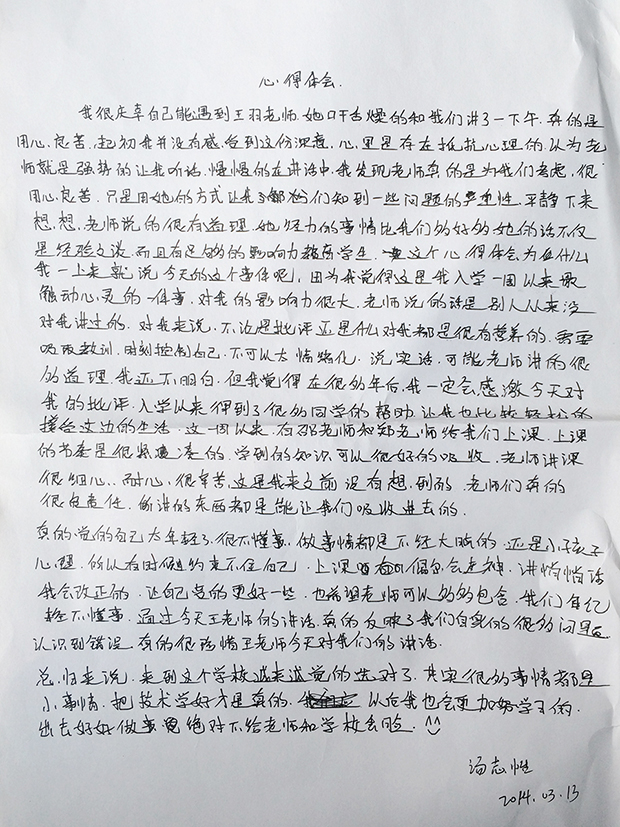 心得体会.
我很庆幸自己能遇到王羽老师.她口干舌燥的和我们讲了一下午.真的是
用心良苦.起初我并没有感受到这份深意,心里是存在抵抗心理的.以为老
师就是强势的让我听话.慢慢的在讲话中.我发现老师真的是为我们考虑,很
用心良苦.只是用她的方式让我们知到一些问题的严重性.平静下来
想,想.老师说的很有道理.她经历的事情比我们多的多的她的话不仅
是经验之谈.而且有足够的影响力教育学生.这个心得体会为什么
我一上来就说今天的这个事件呢,因为我觉得这是我入学一周以来最
触动心灵的一件事.对我的影响力很大.老师说的话是别人从来没
对我讲过的.对我来说.不论是批评还是什么对我都是很有营养的.需要
吸取教训.时刻控制自己.不可以太情绪化.说实话.可能老师讲的很
多道理.我还不明白.但我觉得在很多年后.我一定会感激今天对
我的批评.入学以来得到了很多同学的帮助.让我也比较轻松的
接受这边的生活.这一周以来.有邵老师和郑老师给我们上课.上课
的节奏是很紧凑的.学到的知识可以很好的吸收.老师讲课
很细心.耐心.很辛苦.这是我来之前没有想到的.老师们真的
很负责任.所讲的东西都是能让我们吸收进去的.
真的觉的自己太年轻了.很不懂事.做事情都是不经大脑的.还是小孩子
心理.所以有时候约束不住自己.上课偶尔会走神.讲悄悄话
我会改正的.让自己变的更好一些.也希望老师可以多多的包含.我们年纪
轻不懂事.通过今天王老师的讲话.真的反映了我们自身的很多问题
认识到错误.真的很珍惜王老师今天对我们的讲话.
总归来说.来到这个学校越来越觉的选对了.其实很多事情都是
小事情.把技术学好才是真的.以后我也会更加努学习的.
出去好好做事绝对不给老师和学校丢脸.
汤志恒
2014.03.13